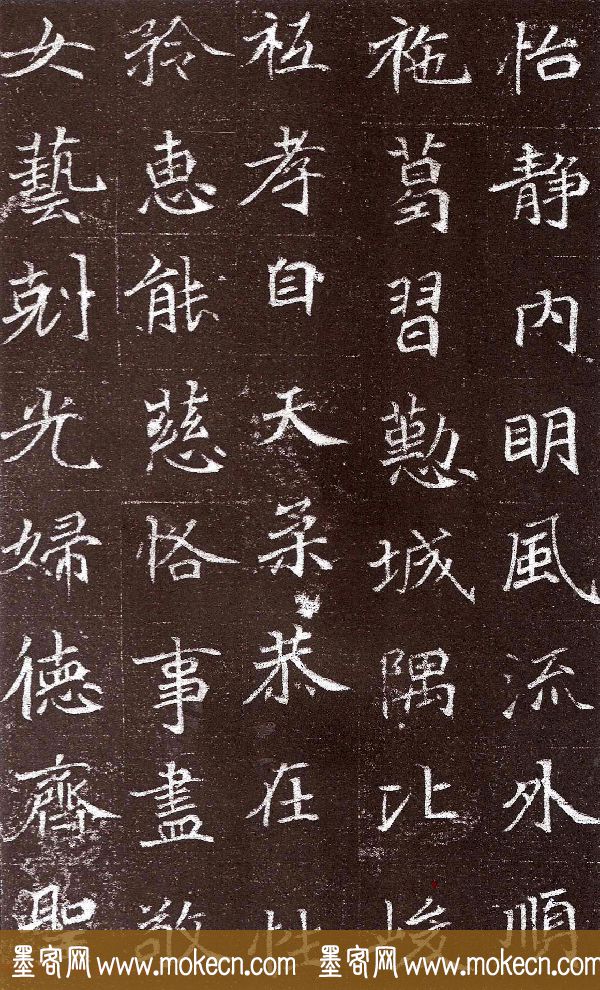 怡静内明風流外順
葛習懃城隅比峻
孝自天柔恭在性
矜惠能慈恪事盡敬
女藝尅光婦徳齊聖
墨客网 www.mokecn.com 墨客网 www.mokecn.com